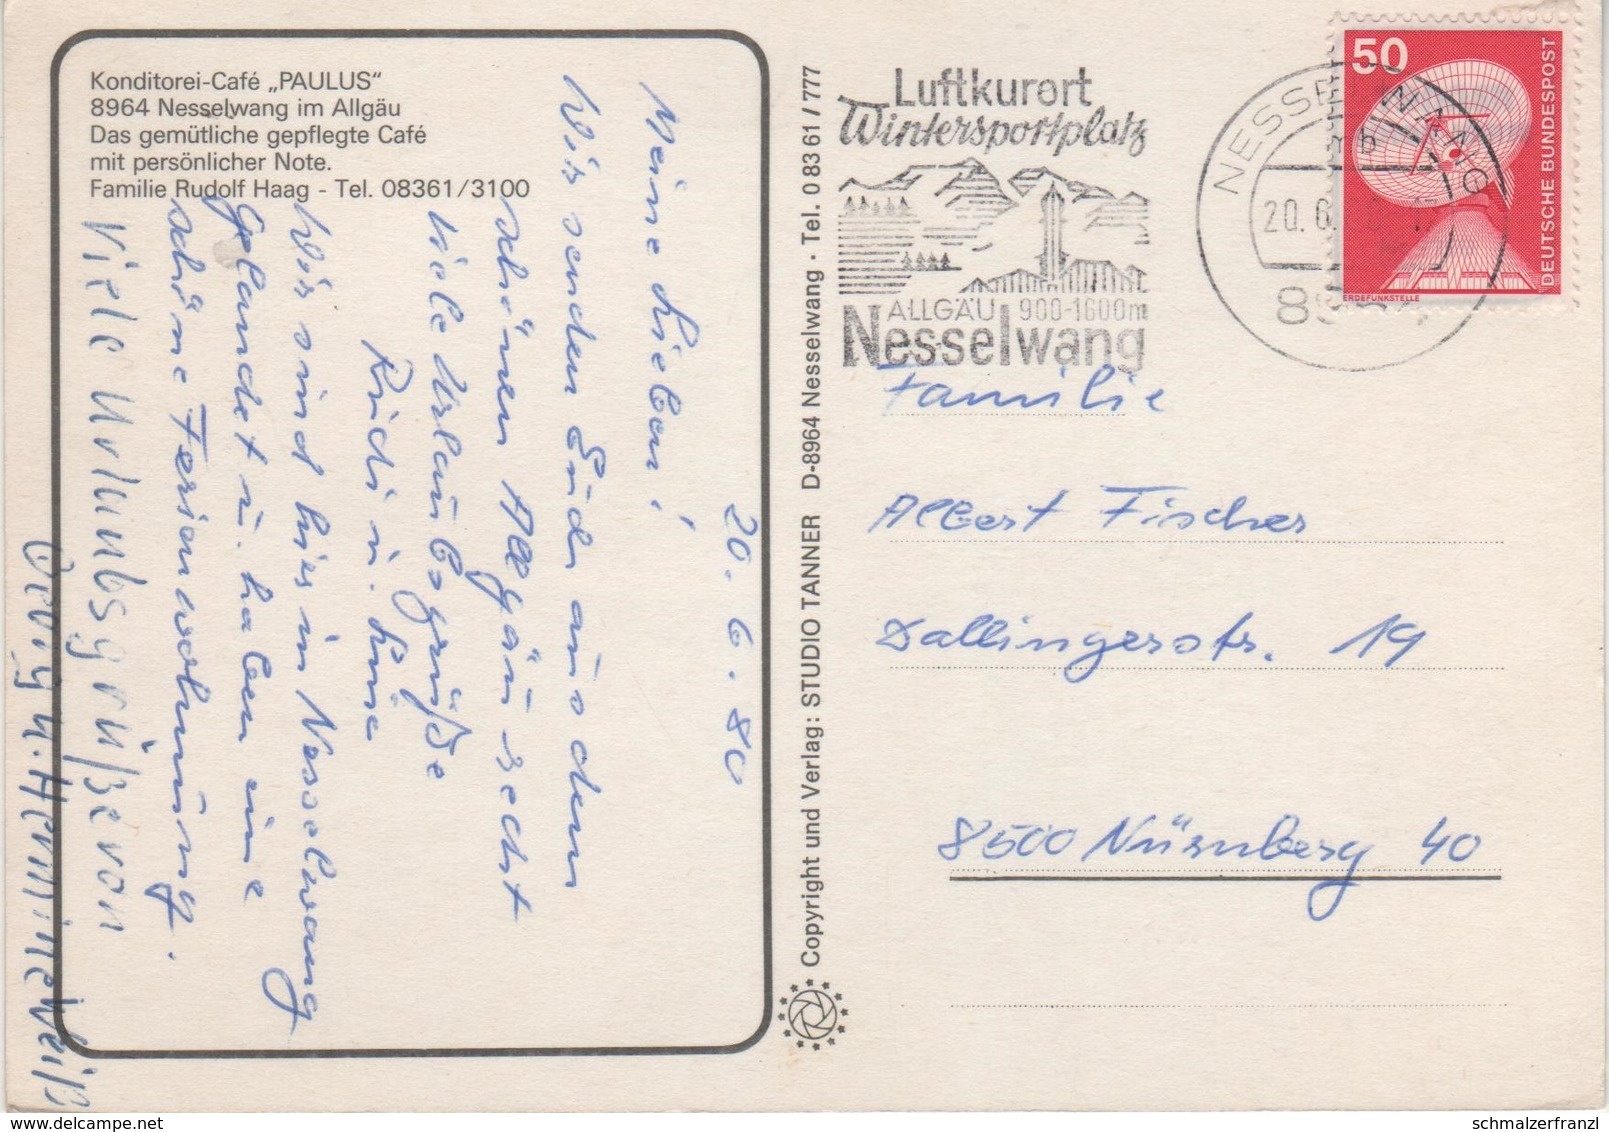 Konditorei-Café „PAULUS“
8964 Nesselwang im Allgäu
Das gemütliche gepflegte Café
mit persönlicher Note.
Familie Rudolf Haag - Tel. 08361/3100
20. 6. 80
Meine Lieben!
Wir senden Euch aus dem
schönen Allgäu recht
viele Urlaubsgrüße
Rudi u. Line
Wir sind hier in Nesselwang
gelandet u. haben eine
schöne Ferienwohnung.
Viele Urlaubsgrüße von
u. Hermine Weiß
Copyright und Verlag: STUDIO TANNER D-8964 Nesselwang · Tel. 0 83 61 / 777
Luftkurort
Wintersportplatz
ALLGÄU 900-1600m
Nesselwang
NESSELWANG
20. 6.
50
DEUTSCHE BUNDESPOST
ERDEFUNKSTELLE
Familie
Albert Fischer
Dallingerstr. 19
8500 Nürnberg 40
schmalzerfranzl
www.delcampe.net